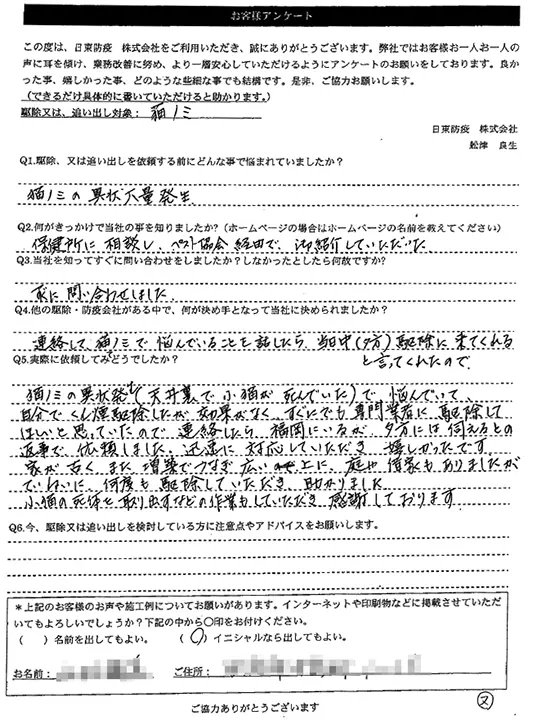 お客様アンケート
この度は、日東防疫　株式会社をご利用いただき、誠にありがとうございます。弊社ではお客様お一人お一人の
声に耳を傾け、業務改善に努め、より一層安心していただけるようにアンケートのお願いをしております。良か
った事、嬉しかった事、どのような些細な事でも結構です。是非、ご協力お願いします。
（できるだけ具体的に書いていただけると助かります。）
駆除又は、追い出し対象：猫ノミ
日東防疫　株式会社
舩津　良生
Q1.駆除、又は追い出しを依頼する前にどんな事で悩まれていましたか？
猫ノミの異状大量発生
Q2.何がきっかけで当社の事を知りましたか？（ホームページの場合はホームページの名前を教えてください）
保健所に相談し、ペスト協会経由で、御紹介していただいた
Q3.当社を知ってすぐに問い合わせをしましたか？しなかったとしたら何故ですか？
直に問い合わせしました
Q4.他の駆除・防疫会社がある中で、何が決め手となって当社に決められましたか？
連絡して、猫ノミで悩んでいることを話したら、当日中（夕方）駆除に来てくれる
と言ってくれたので
Q5.実際に依頼してみどうでしたか？
猫ノミの異状発生（天井裏で小猫が死んでいた）で悩んでいて、
自分でくん煙駆除したが効果がなく、すぐにでも専門業者に駆除して
ほしいと思っていたので連絡したら福岡にいるが夕方には伺えるとの
返事で、依頼しました　迅速に対応していただき嬉しかったです
家が古く、また増築でつなぎ広い上に、庭や借家もありましたが
ていねいに、何度も駆除していただき助かりました
小猫の死体を取り出すなどの作業もしていただき感謝しております
Q6.今、駆除又は追い出しを検討している方に注意点やアドバイスをお願いします。
＊上記のお客様のお声や施工例についてお願いがあります。インターネットや印刷物などに掲載させていただ
いてもよろしいでしょうか？下記の中から〇印をお付けください。
（　）名前を出してもよい。　（〇）イニシャルなら出してもよい。
お名前：　ご住所：
ご協力ありがとうございます